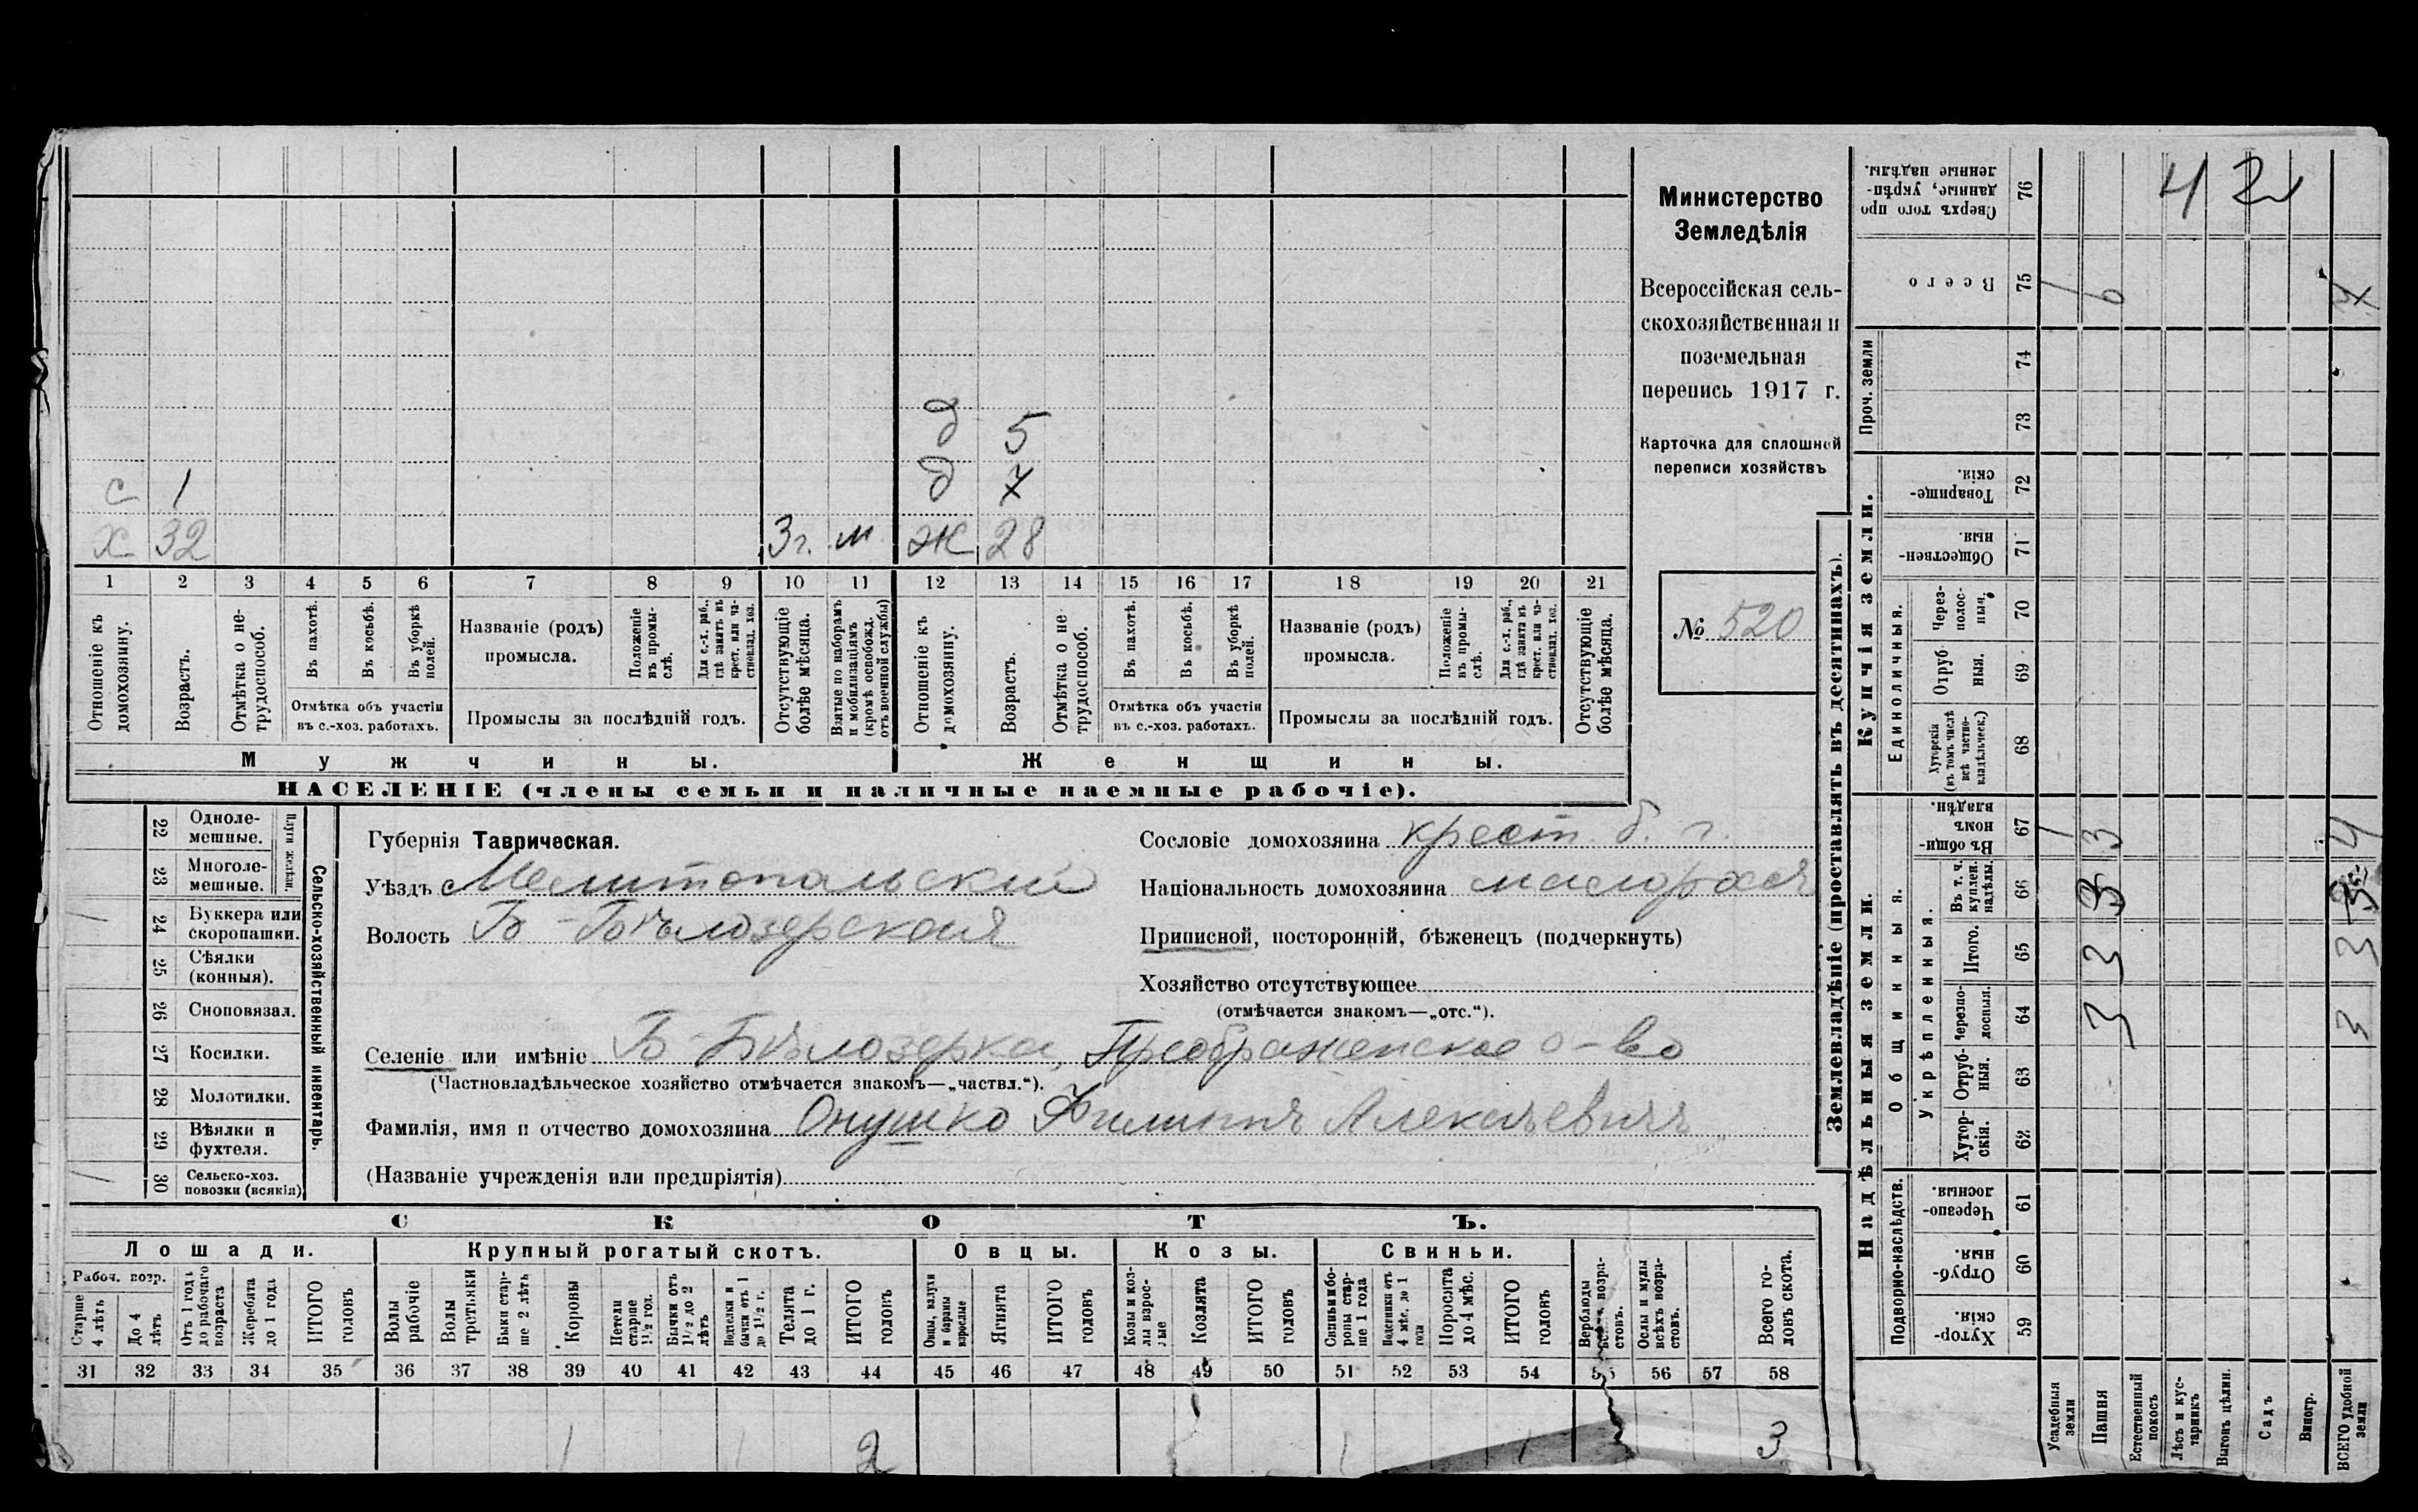 Министерство
Земледѣлія
Всероссійская сель-
скохозяйственная и
поземельная
перепись 1917 г.
Карточка для сплошной
переписи хозяйствъ
№ 520
д 5
с 1 д 7
х 32 3 г. м ж 28
1 2 3 4 5 6 7 8 9 10 11 12 13 14 15 16 17 18 19 20 21
Отношеніе къ домохозяину.
Возрастъ.
Отмѣтка о не-трудоспособ.
Въ пахотѣ.
Въ косьбѣ.
Въ уборкѣ полей.
Отмѣтка объ участіи
въ с.-хоз. работахъ.
Названіе (родъ)
промысла.
Положеніе въ промы-слѣ.
Для с.-х. раб., гдѣ занятъ въ крест. или ча-стновлад. хоз.
Промыслы за послѣдній годъ.
Отсутствующіе болѣе мѣсяца.
Взятые по наборамъ и мобилизаціямъ (кромѣ освобожд. отъ военной службы)
Отношеніе къ домохозяину.
Возрастъ.
Отмѣтка о не трудоспособ.
Въ пахотѣ.
Въ косьбѣ.
Въ уборкѣ полей.
Отмѣтка объ участіи
въ с.-хоз. работахъ.
Названіе (родъ)
промысла.
Положеніе въ промы-слѣ.
Для с.-х. раб., гдѣ занята въ крест. или ча-стновлад. хоз.
Промыслы за послѣдній годъ.
Отсутствующіе болѣе мѣсяца.
Мужчины. Женщины.
НАСЕЛЕНІЕ (члены семьи и наличные наемные рабочіе).
Сельско-хозяйственный инвентарь.
Плуги желѣзн.
22 Одноле-мешные.
23 Многоле-мешные.
24 Буккера или скоропашки.
25 Сѣялки (конныя).
26 Сноповязал.
27 Косилки.
28 Молотилки.
29 Вѣялки и фухтеля.
30 Сельско-хоз. повозки (всякія)
Губернія Таврическая.
Уѣздъ Мелитопольский
Волость Б-Бѣлозерская
Сословіе домохозяина крест. б. г.
Національность домохозяина малорос
Приписной, посторонній, бѣженецъ (подчеркнуть)
Хозяйство отсутствующее
(отмѣчается знакомъ—„отс.“).
Селеніе или имѣніе Б-Бѣлозерка, Преображенское о-во
(Частновладѣльческое хозяйство отмѣчается знакомъ—„частвл.“).
Фамилія, имя и отчество домохозяина Онушко Филиппъ Алексѣевичъ
(Названіе учрежденія или предпріятія)
СКОТЪ.
Лошади. Крупный рогатый скотъ. Овцы. Козы. Свиньи.
Рабоч. возр.
Старше 4 лѣтъ
До 4 лѣтъ
Отъ 1 года до рабочаго возраста
Жеребята до 1 года
ИТОГО головъ
Волы рабочіе
Волы третьяки
Быки стар-ше 2 лѣтъ
Коровы
Нетели старше 1½ год.
Бычки отъ 1½ до 2 лѣтъ
Нетелки и бычки отъ 1 до 1½ г.
Телята до 1 г.
ИТОГО головъ
Овцы, валухи и бараны взрослые
Ягнята
ИТОГО головъ
Козы и коз-лы взрос-лые
Козлята
ИТОГО головъ
Свиньи бо-ровы стар-ше 1 года
Подсвинки отъ 4 мѣс. до 1 года
Поросята до 4 мѣс.
ИТОГО головъ
Верблюды возра-стовъ.
Ослы и мулы всѣхъ возра-стовъ.
Всего го-ловъ скота.
31 32 33 34 35 36 37 38 39 40 41 42 43 44 45 46 47 48 49 50 51 52 53 54 55 56 57 58
1 1 2 1 1 3
Землевладѣніе (проставлять въ десятинахъ).
Надѣльныя земли.
Купчія земли.
Проч. земли
Подворно-наслѣдств.
Общинныя.
Укрѣпленныя.
Единоличныя.
76 Сверхъ того про данные, укрѣп-ленные надѣлы.
75 Всего
74
73
72 Товарище-скія.
71 Обществен-ныя
70 Через-полос-ныя.
69 Отруб-ныя.
68 Хуторскія (въ томъ числѣ всѣ частно-владѣльческ.)
67 Въ общин-номъ владѣн.
66 Въ т. ч. куплен. надѣлы.
65 Итого.
64 Черезпо-лосныя.
63 Отруб-ныя.
62 Хутор-скія.
61 Черезпо-лосныя.
60 Отруб-ныя.
59 Хутор-скія.
Усадебныя земли
Пашня
Естественный покосъ
Лѣсъ и кус-тарникъ
Выгонъ цѣлин.
Садъ
Виногр.
ВСЕГО удобной земли
42
1 6 7
1 3 4
3 3
3 3
3 3